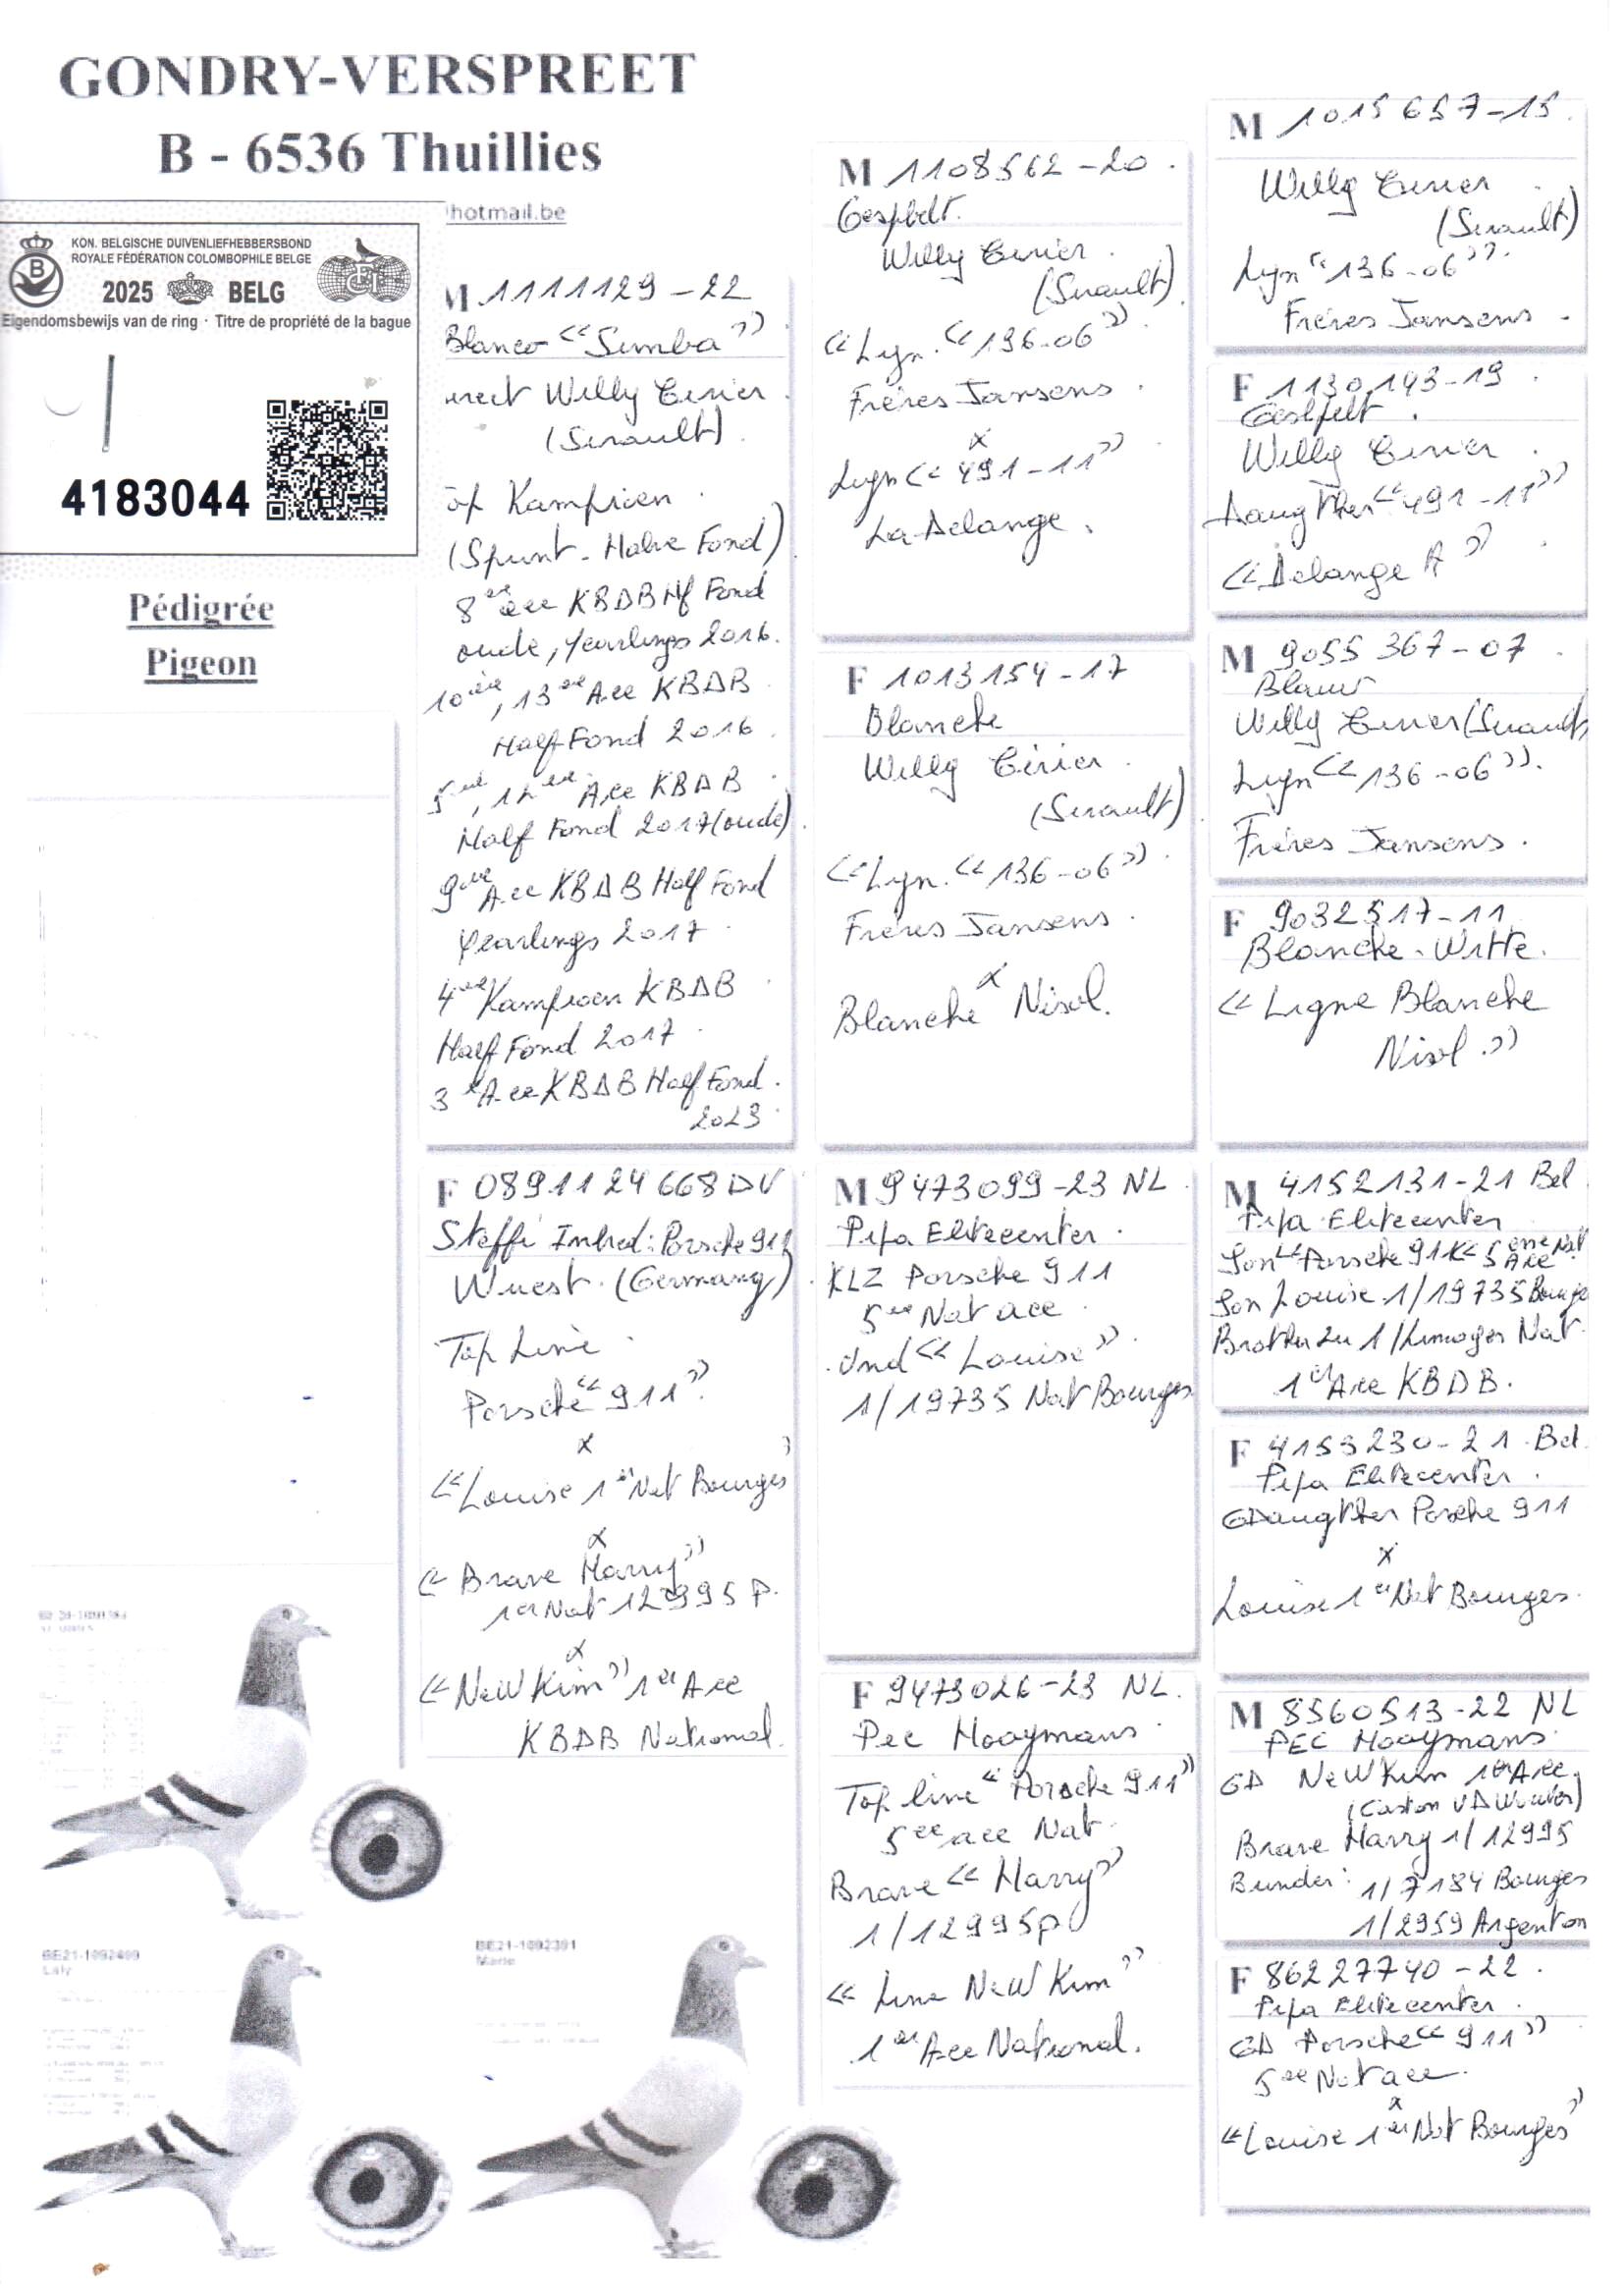 GONDRY-VERSPREET
B - 6536 Thuillies
hotmail.be
KON. BELGISCHE DUIVENLIEFHEBBERSBOND
ROYALE FÉDÉRATION COLOMBOPHILE BELGE
2025 BELG
Eigendomsbewijs van de ring · Titre de propriété de la bague
4183044
Pédigrée
Pigeon
M 1111129-22
Blanco "Simba"
Willy Cirier
(Sirault)
Kampioen
(Sprint-Halve Fond)
8 ace KBDB Hf Fond
oude, yearlings 2016.
10ième, 13ème Ace KBDB
Half Fond 2016.
5ème, 12ème Ace KBDB
Half Fond 2017 (oude)
9ème Ace KBDB Half Fond
Yearlings 2017
4ème Kampioen KBDB
Half Fond 2017
3 Ace KBDB Half Fond.
2023
F 0891124668 DV
Steffi Inbred: Porsche 911
Wuest (Germany)
Top Line
Porsche "911"
x
"Louise 1er Nat Bourges
x
"Brave Harry"
1er Nat 12995 P.
x
"New Kim" 1er Ace
KBDB National.
M 1108562-20
Gespelt.
Willy Cirier
(Sirault)
"Lyn. "136-06"
Frères Jansens
x
Lyn "491-11"
La Delange.
F 1013154-17
Blanche
Willy Cirier
(Sirault)
"Lyn. "136-06"
Frères Jansens
x
Blanche Nisol.
M 9473099-23 NL
Pipa Elitecenter
KLZ Porsche 911
5ème Nat ace
Und "Louise"
1/19735 Nat Bourges
F 9473026-23 NL.
Pec Hooymans
Top line "Porsche 911"
5ème ace Nat
Brave "Harry"
1/12995p
"Line New Kim"
1er Ace National.
M 1015657-15
Willy Cirier
(Sirault)
Lyn "136-06".
Frères Jansens
F 1130143-19
Willy Cirier
Daugther "491-11"
"Delange A"
M 9055367-07
Blauw
Willy Cirier (Sirault)
Lyn "136-06".
Frères Jansens.
F 9032517-11
Blanche-Witte.
"Ligne Blanche
Nisol."
M 4152131-21 Bel
Pipa Elitecenter
Son "Porsche 911" 5ème Nat Ace
Son Louise 1/19735 Bourges
Brother zu 1/Limoges Nat
1er Ace KBDB.
F 4153230-21 Bel
Pipa Elitecenter
GDaugther Porsche 911
x
Louise 1er Nat Bourges.
M 8560513-22 NL
PEC Hooymans
GD New Kim 1er Ace
(Gaston VD Wouwer)
Brave Harry 1/12995
1/7184 Bourges
1/2959 Argenton
F 86227740-22
Pipa Elitecenter
GD Porsche "911"
5ème Nat ace
x
"Louise 1er Nat Bourges"
BE21-1092409
Laly
BE21-1092391
Marie